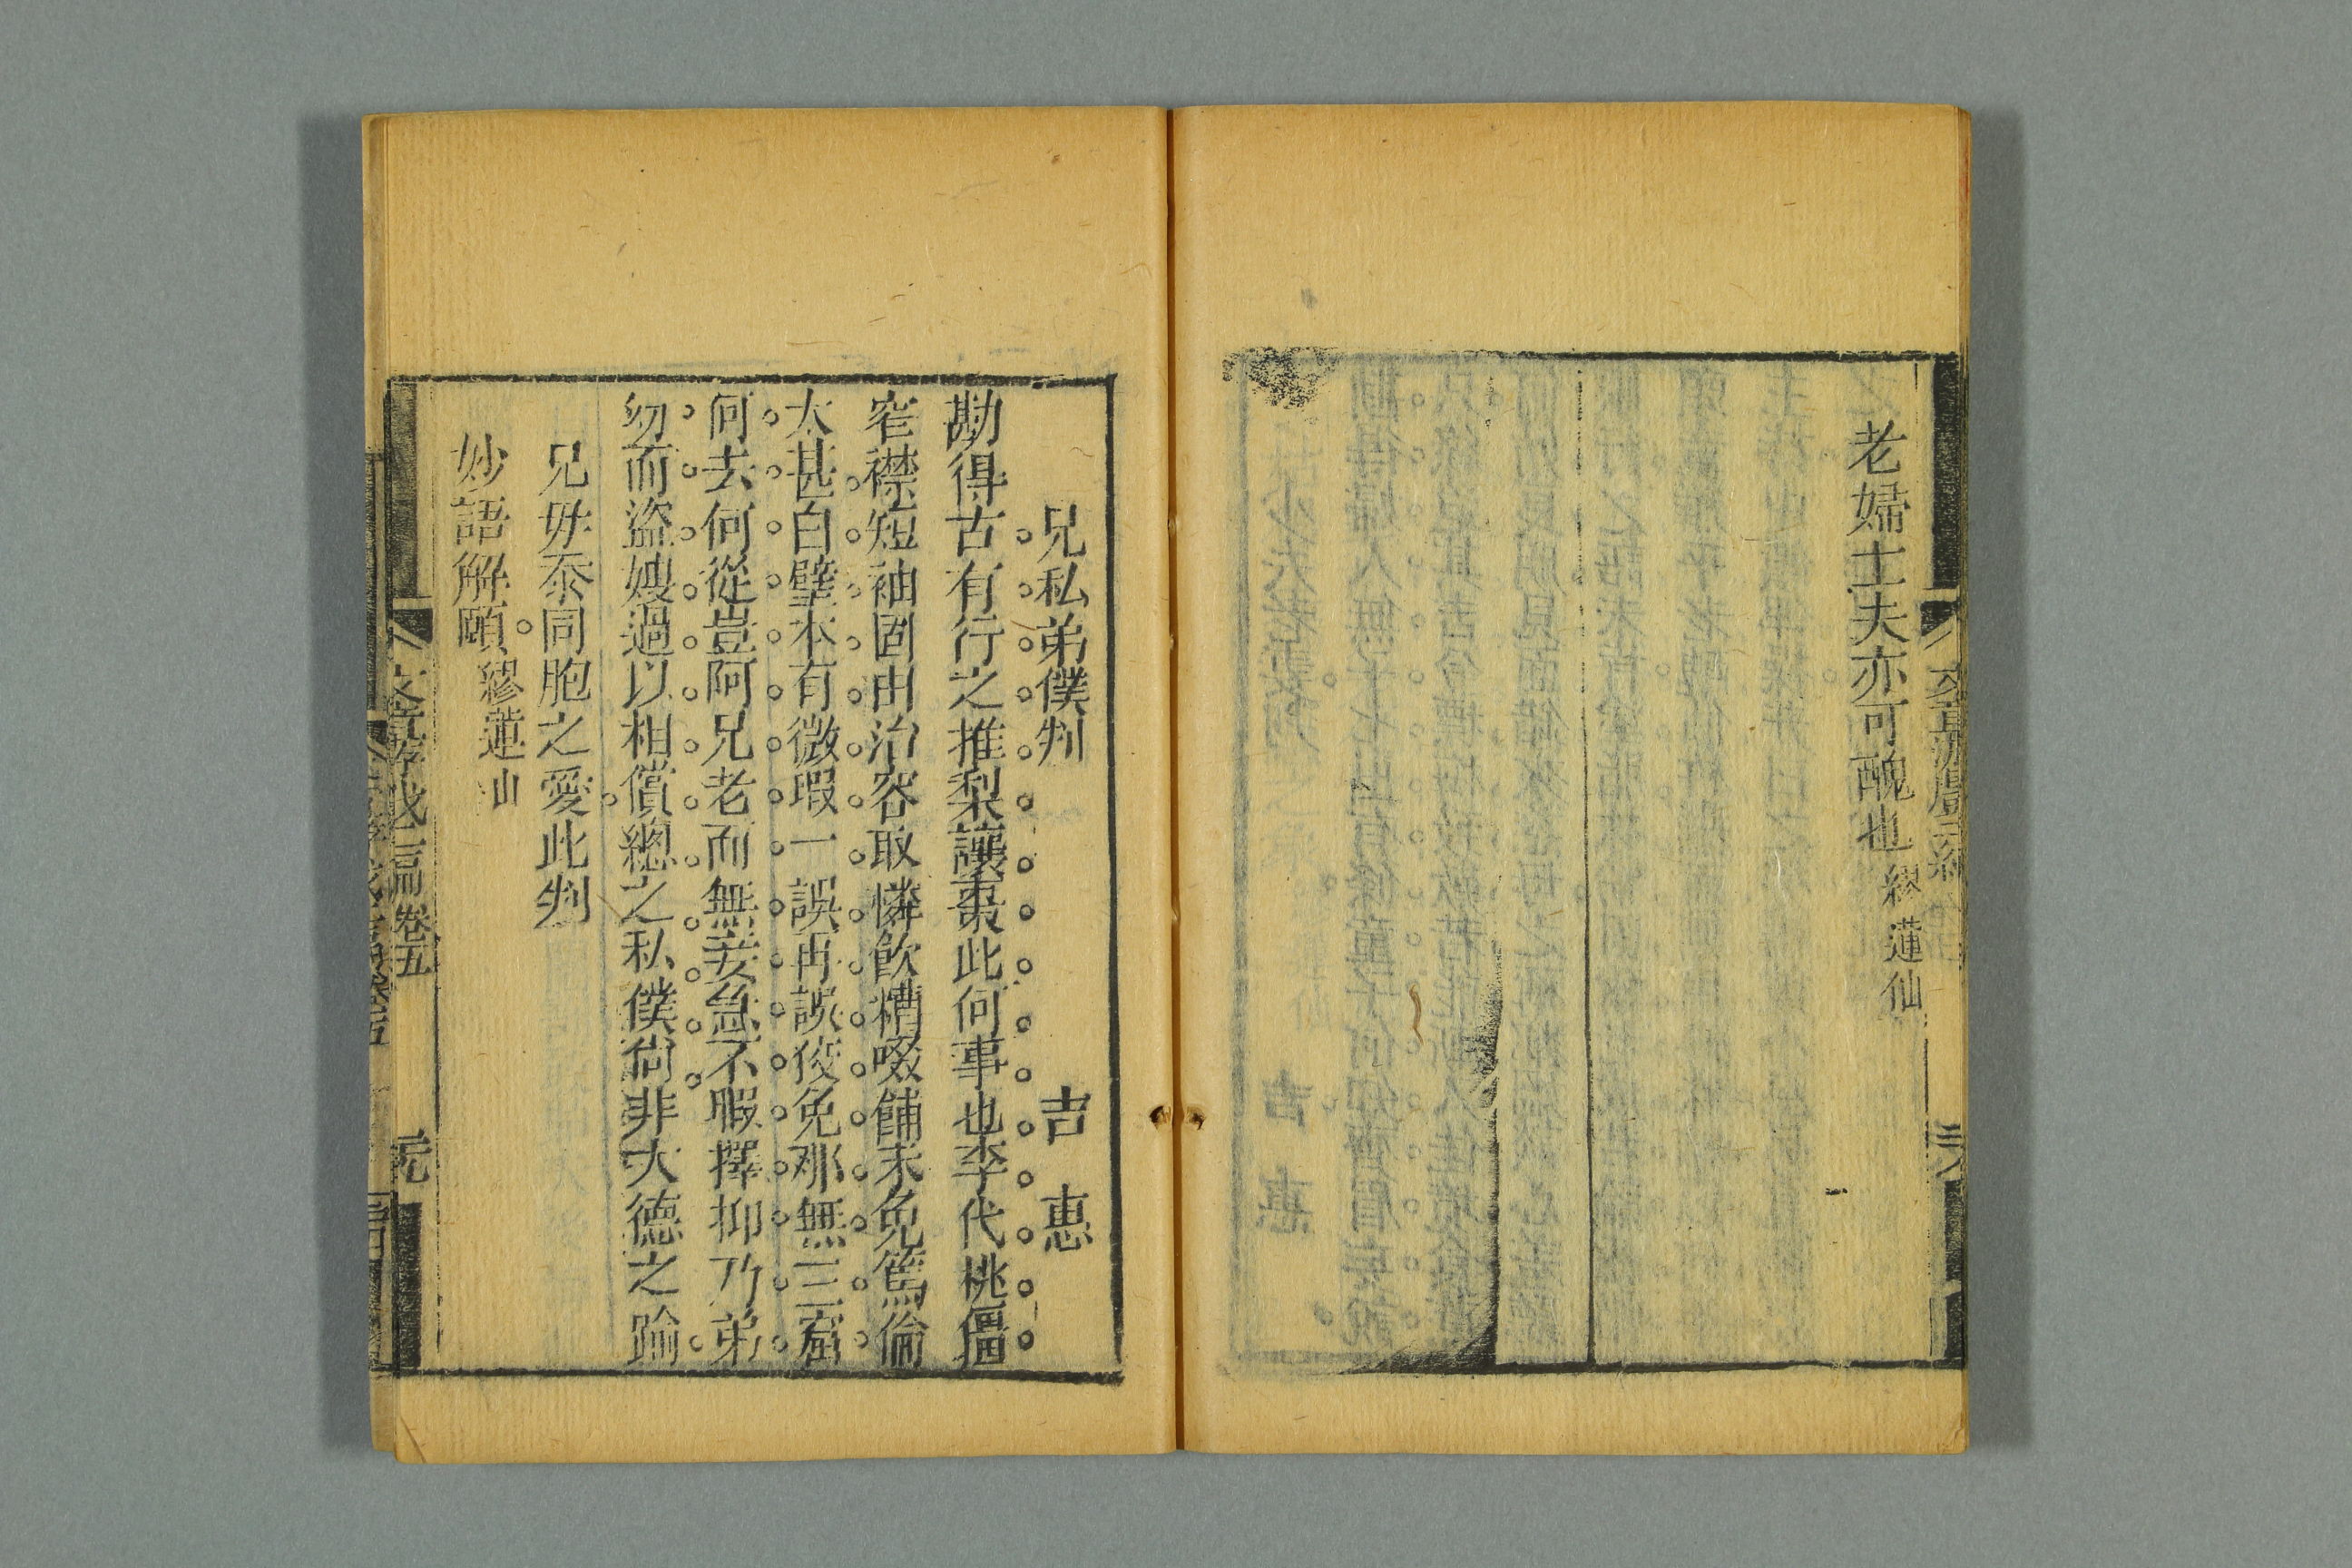 老婦士夫亦可醜也 繆蓮仙
文章游戲三編
三八
兄私弟僕判 吉惠
勘得古有行之推梨讓棗此何事也李代桃僵
窄襟短袖固由治容取憐飲糟啜餔未免篤倫
太甚白璧本有微瑕一誤再誤狡兔那無三窟
何去何從豈阿兄老而無妾急不暇擇抑乃弟
幼而盜嫂過以相償總之私僕尚非大德之踰
兄毋忝同胞之愛此判
妙語解頤 繆蓮山
文章游戲三編 卷五
元